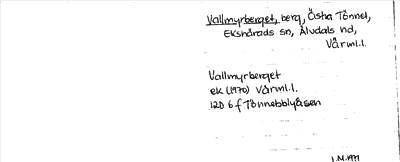 Vallmyrberget, berg, Östra Tönnet,
Ekshärads sn, Älvdals hd,
Värml.l.
Vallmyrberget
ek (1970) Värml.l.
12D 6 f Tönnebblyåsen
I.M. 1971